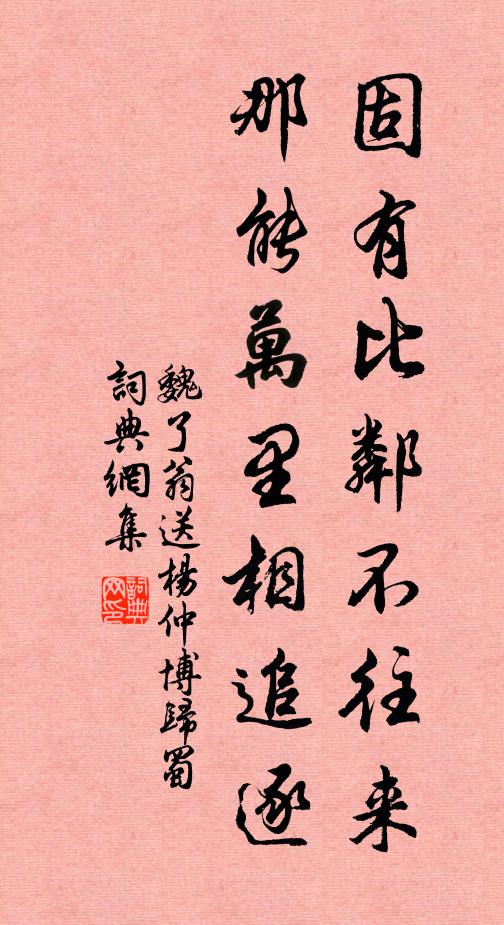 固有比鄰不往来
那能萬里相追逐
魏了翁送楊仲博歸蜀
詞典網集